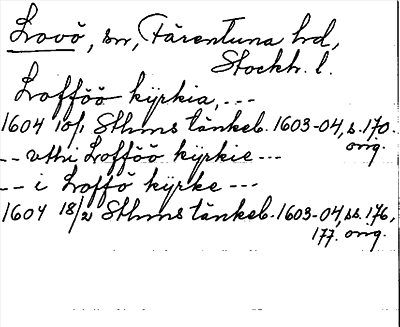 Lovö, sn, Färentuna hd,
Stockh. l.
Lofföö kyrkia, ---
1604 10/1 Sthms tänkeb. 1603-04, s. 170.
orig.
-- vthi Lofföö kyrkie ---
-- i Loffö kyrke ---
1604 18/2 Sthms tänkeb. 1603-04, ss. 176,
177. orig.